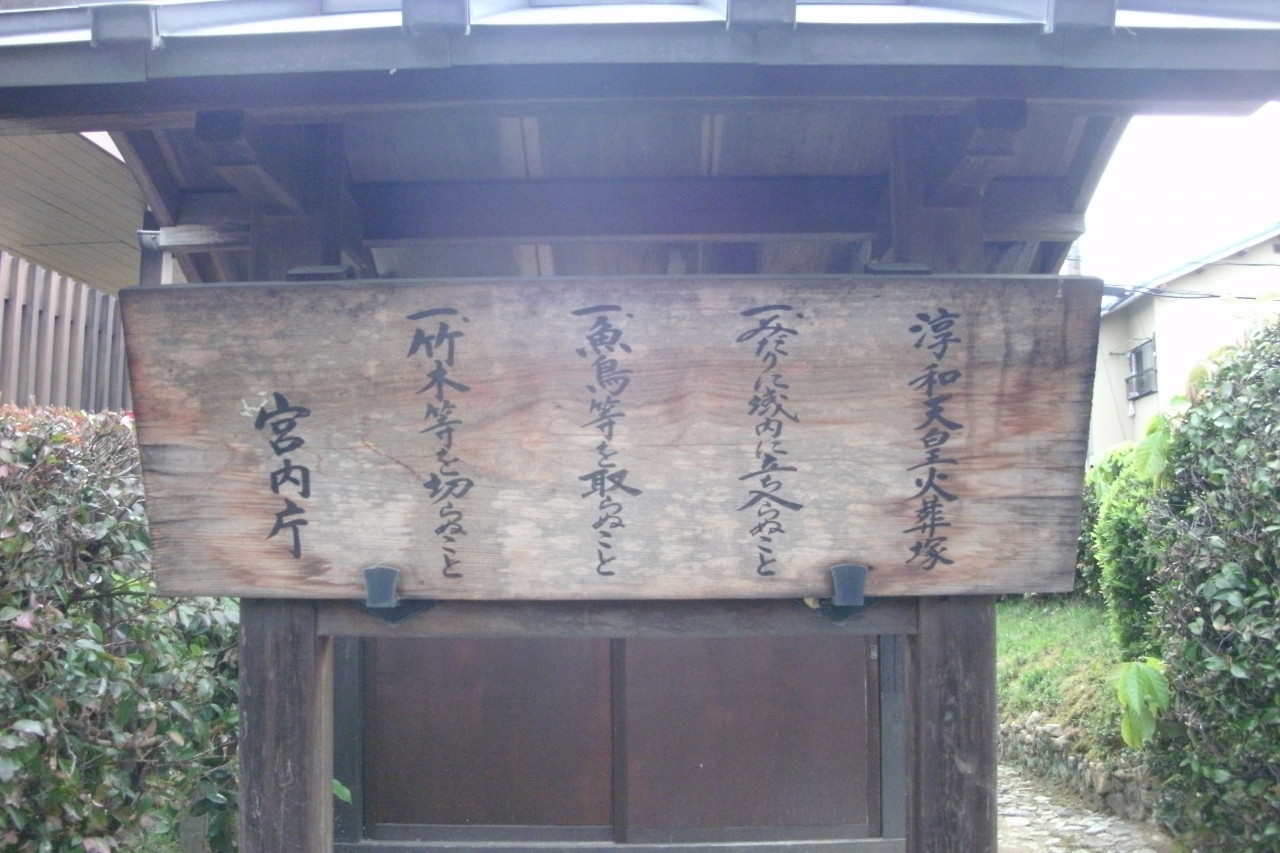 淳和天皇火葬塚
一、みだりに域内に立ち入らぬこと
一、魚鳥等を取らぬこと
一、竹木等を切らぬこと
宮内庁